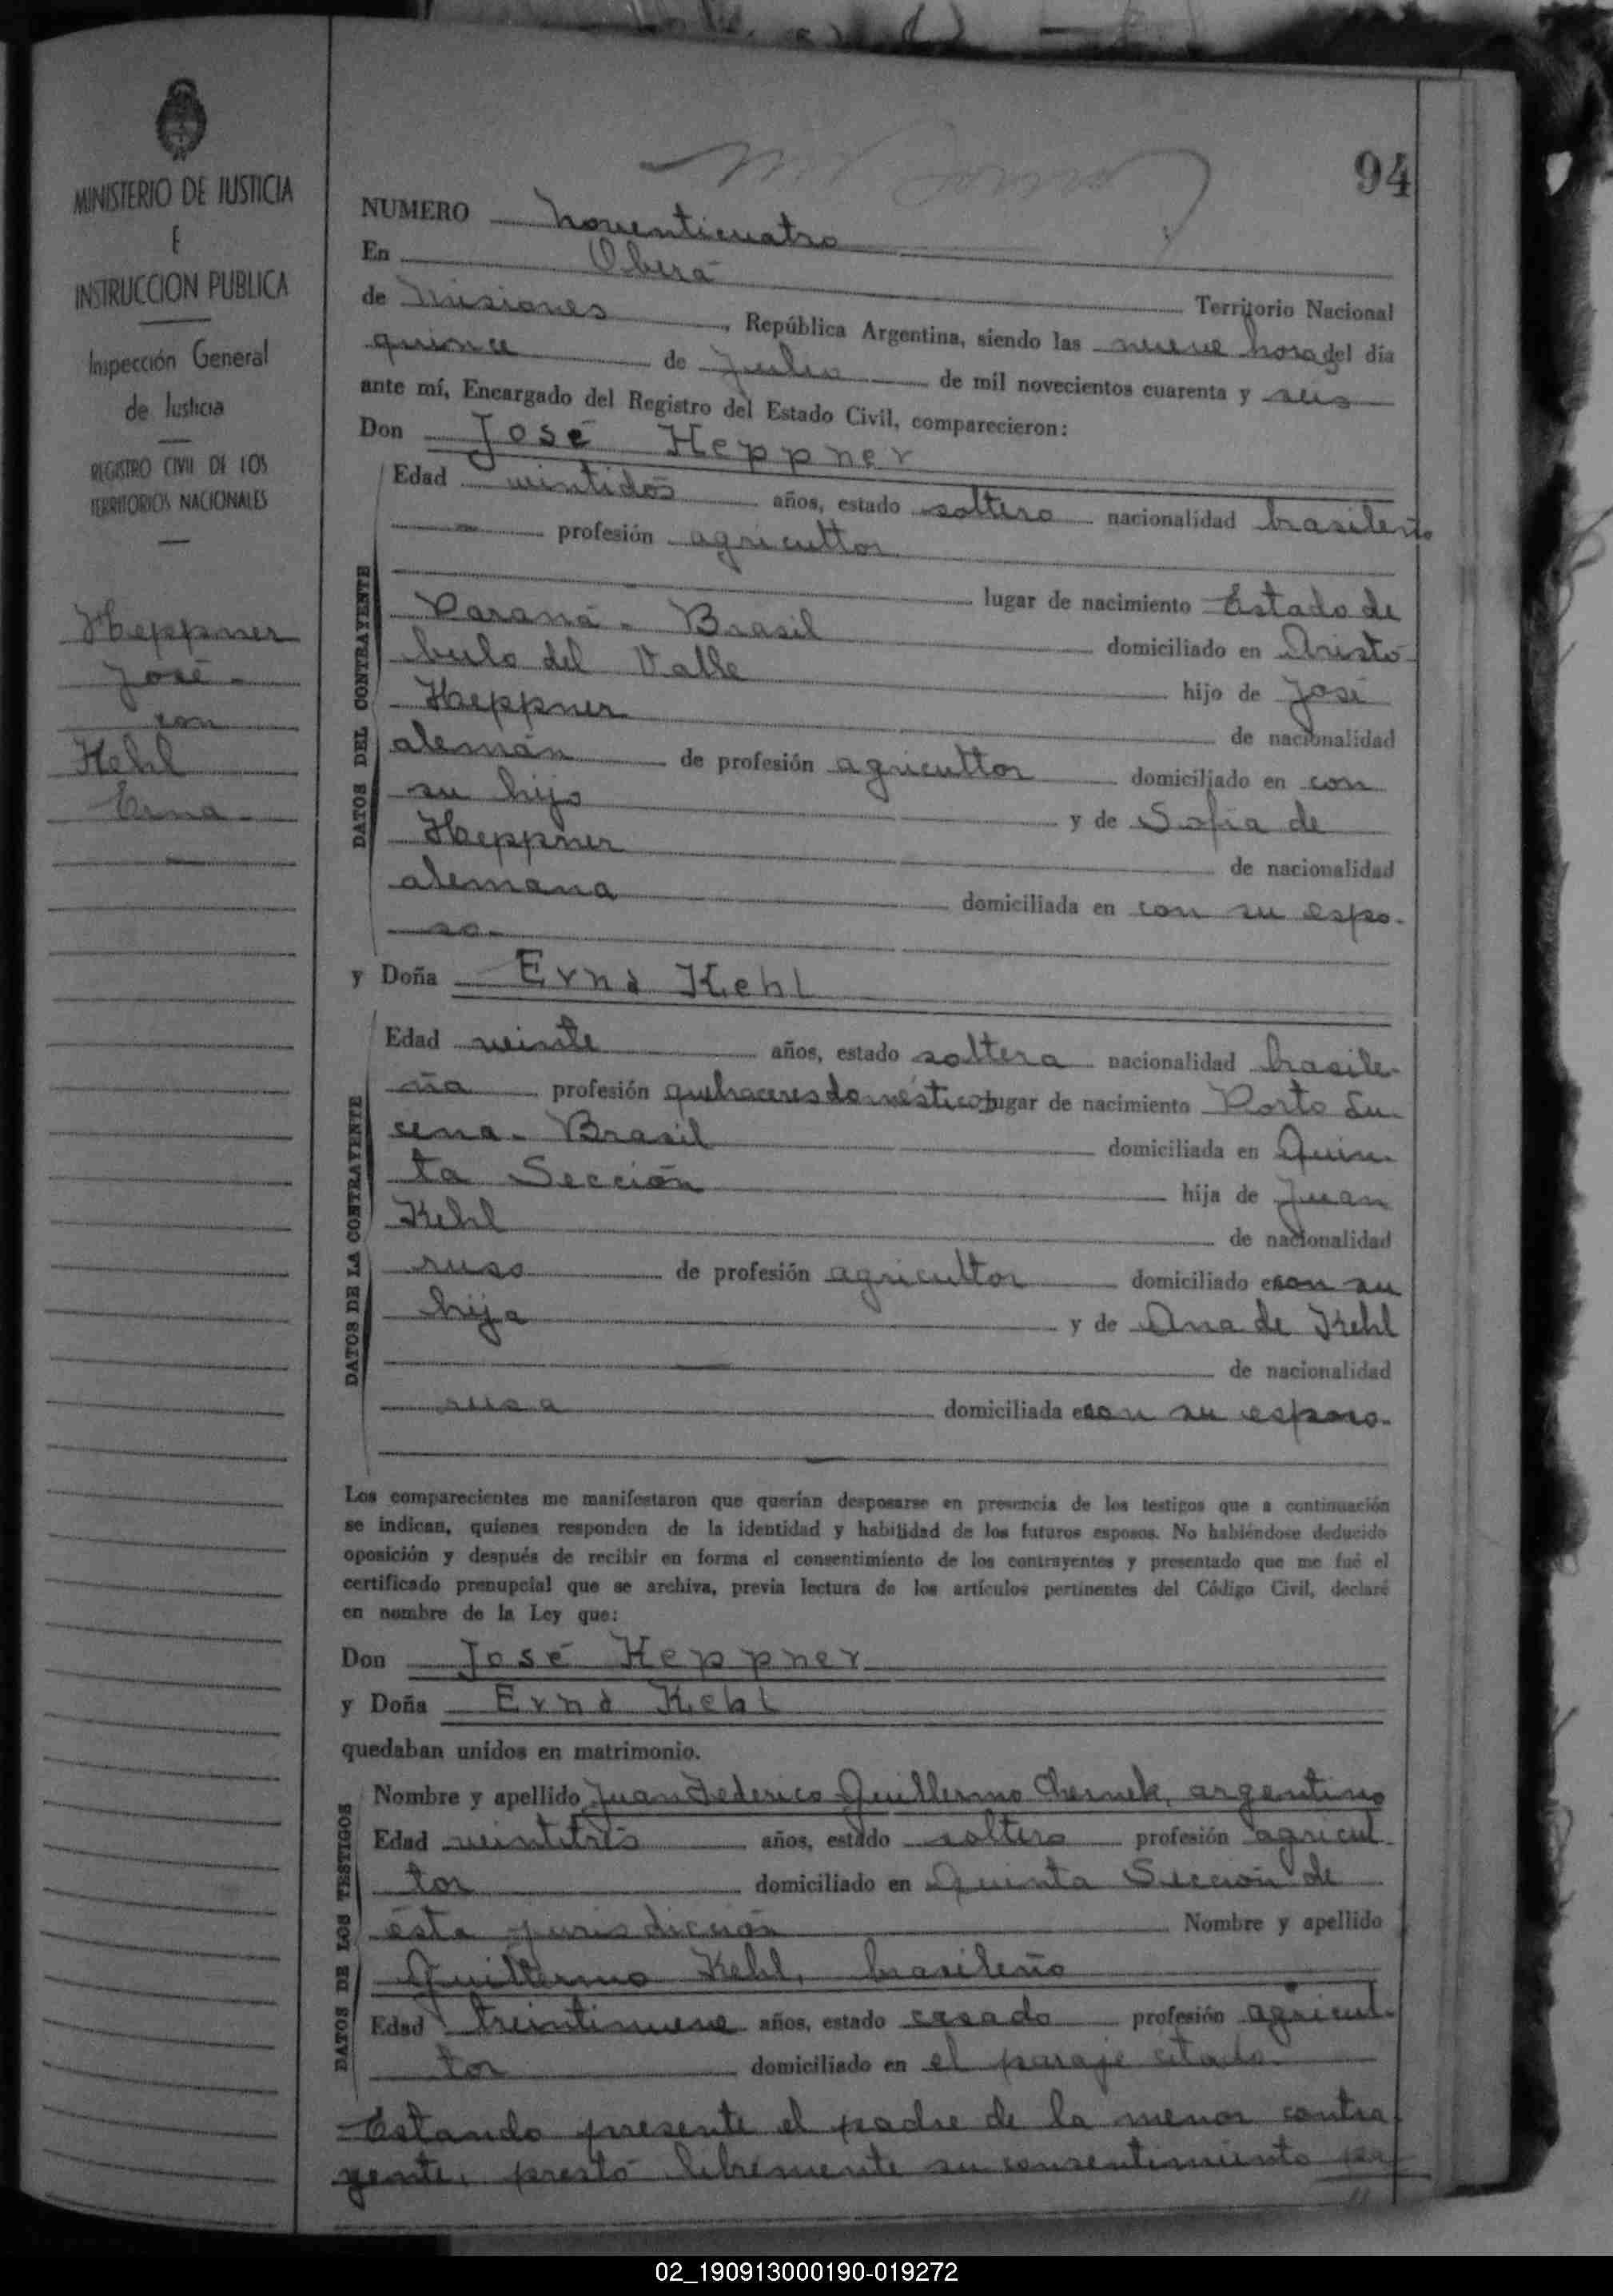 94
MINISTERIO DE JUSTICIA
E
INSTRUCCION PUBLICA
Inspección General
de Justicia
REGISTRO CIVIL DE LOS
TERRITORIOS NACIONALES
Heppner
José -
con
Kehl
Erna -
NUMERO noventicuatro
En Oberá
Territorio Nacional
de Misiones, República Argentina, siendo las nueve horas del día
quince de Julio de mil novecientos cuarenta y seis
ante mí, Encargado del Registro del Estado Civil, comparecieron:
Don José Heppner
DATOS DEL CONTRAYENTE
Edad veintidós años, estado soltero nacionalidad brasileño
profesión agricultor
lugar de nacimiento Estado de
Paraná - Brasil domiciliado en Aristó-
bulo del Valle hijo de José
Heppner de nacionalidad
alemán de profesión agricultor domiciliado en con
su hijo y de Sofía de
Heppner de nacionalidad
alemana domiciliada en con su espo-
so.-
y Doña Erna Kehl
DATOS DE LA CONTRAYENTE
Edad veinte años, estado soltera nacionalidad brasile-
ña profesión quehaceres domésticos lugar de nacimiento Porto Lu-
cena - Brasil domiciliada en Quin-
ta Sección hija de Juan
Kehl de nacionalidad
ruso de profesión agricultor domiciliado en con su
hija y de Ana de Kehl
de nacionalidad
rusa domiciliada en con su esposo.-
Los comparecientes me manifestaron que querían desposarse en presencia de los testigos que a continuación
se indican, quienes responden de la identidad y habilidad de los futuros esposos. No habiéndose deducido
oposición y después de recibir en forma el consentimiento de los contrayentes y presentado que me fué el
certificado prenupcial que se archiva, previa lectura de los artículos pertinentes del Código Civil, declaré
en nombre de la Ley que:
Don José Heppner
y Doña Erna Kehl
quedaban unidos en matrimonio.
DATOS DE LOS TESTIGOS
Nombre y apellido Juan Federico Guillermo Chernek, argentino
Edad veintitrés años, estado soltero profesión agricul-
tor domiciliado en Quinta Sección de
ésta jurisdicción Nombre y apellido
Guillermo Kehl, brasileño
Edad treintinueve años, estado casado profesión agricul-
tor domiciliado en el paraje citado.
Estando presente el padre de la menor contra-
yente, prestó libremente su consentimiento pa-
02_190913000190-019272